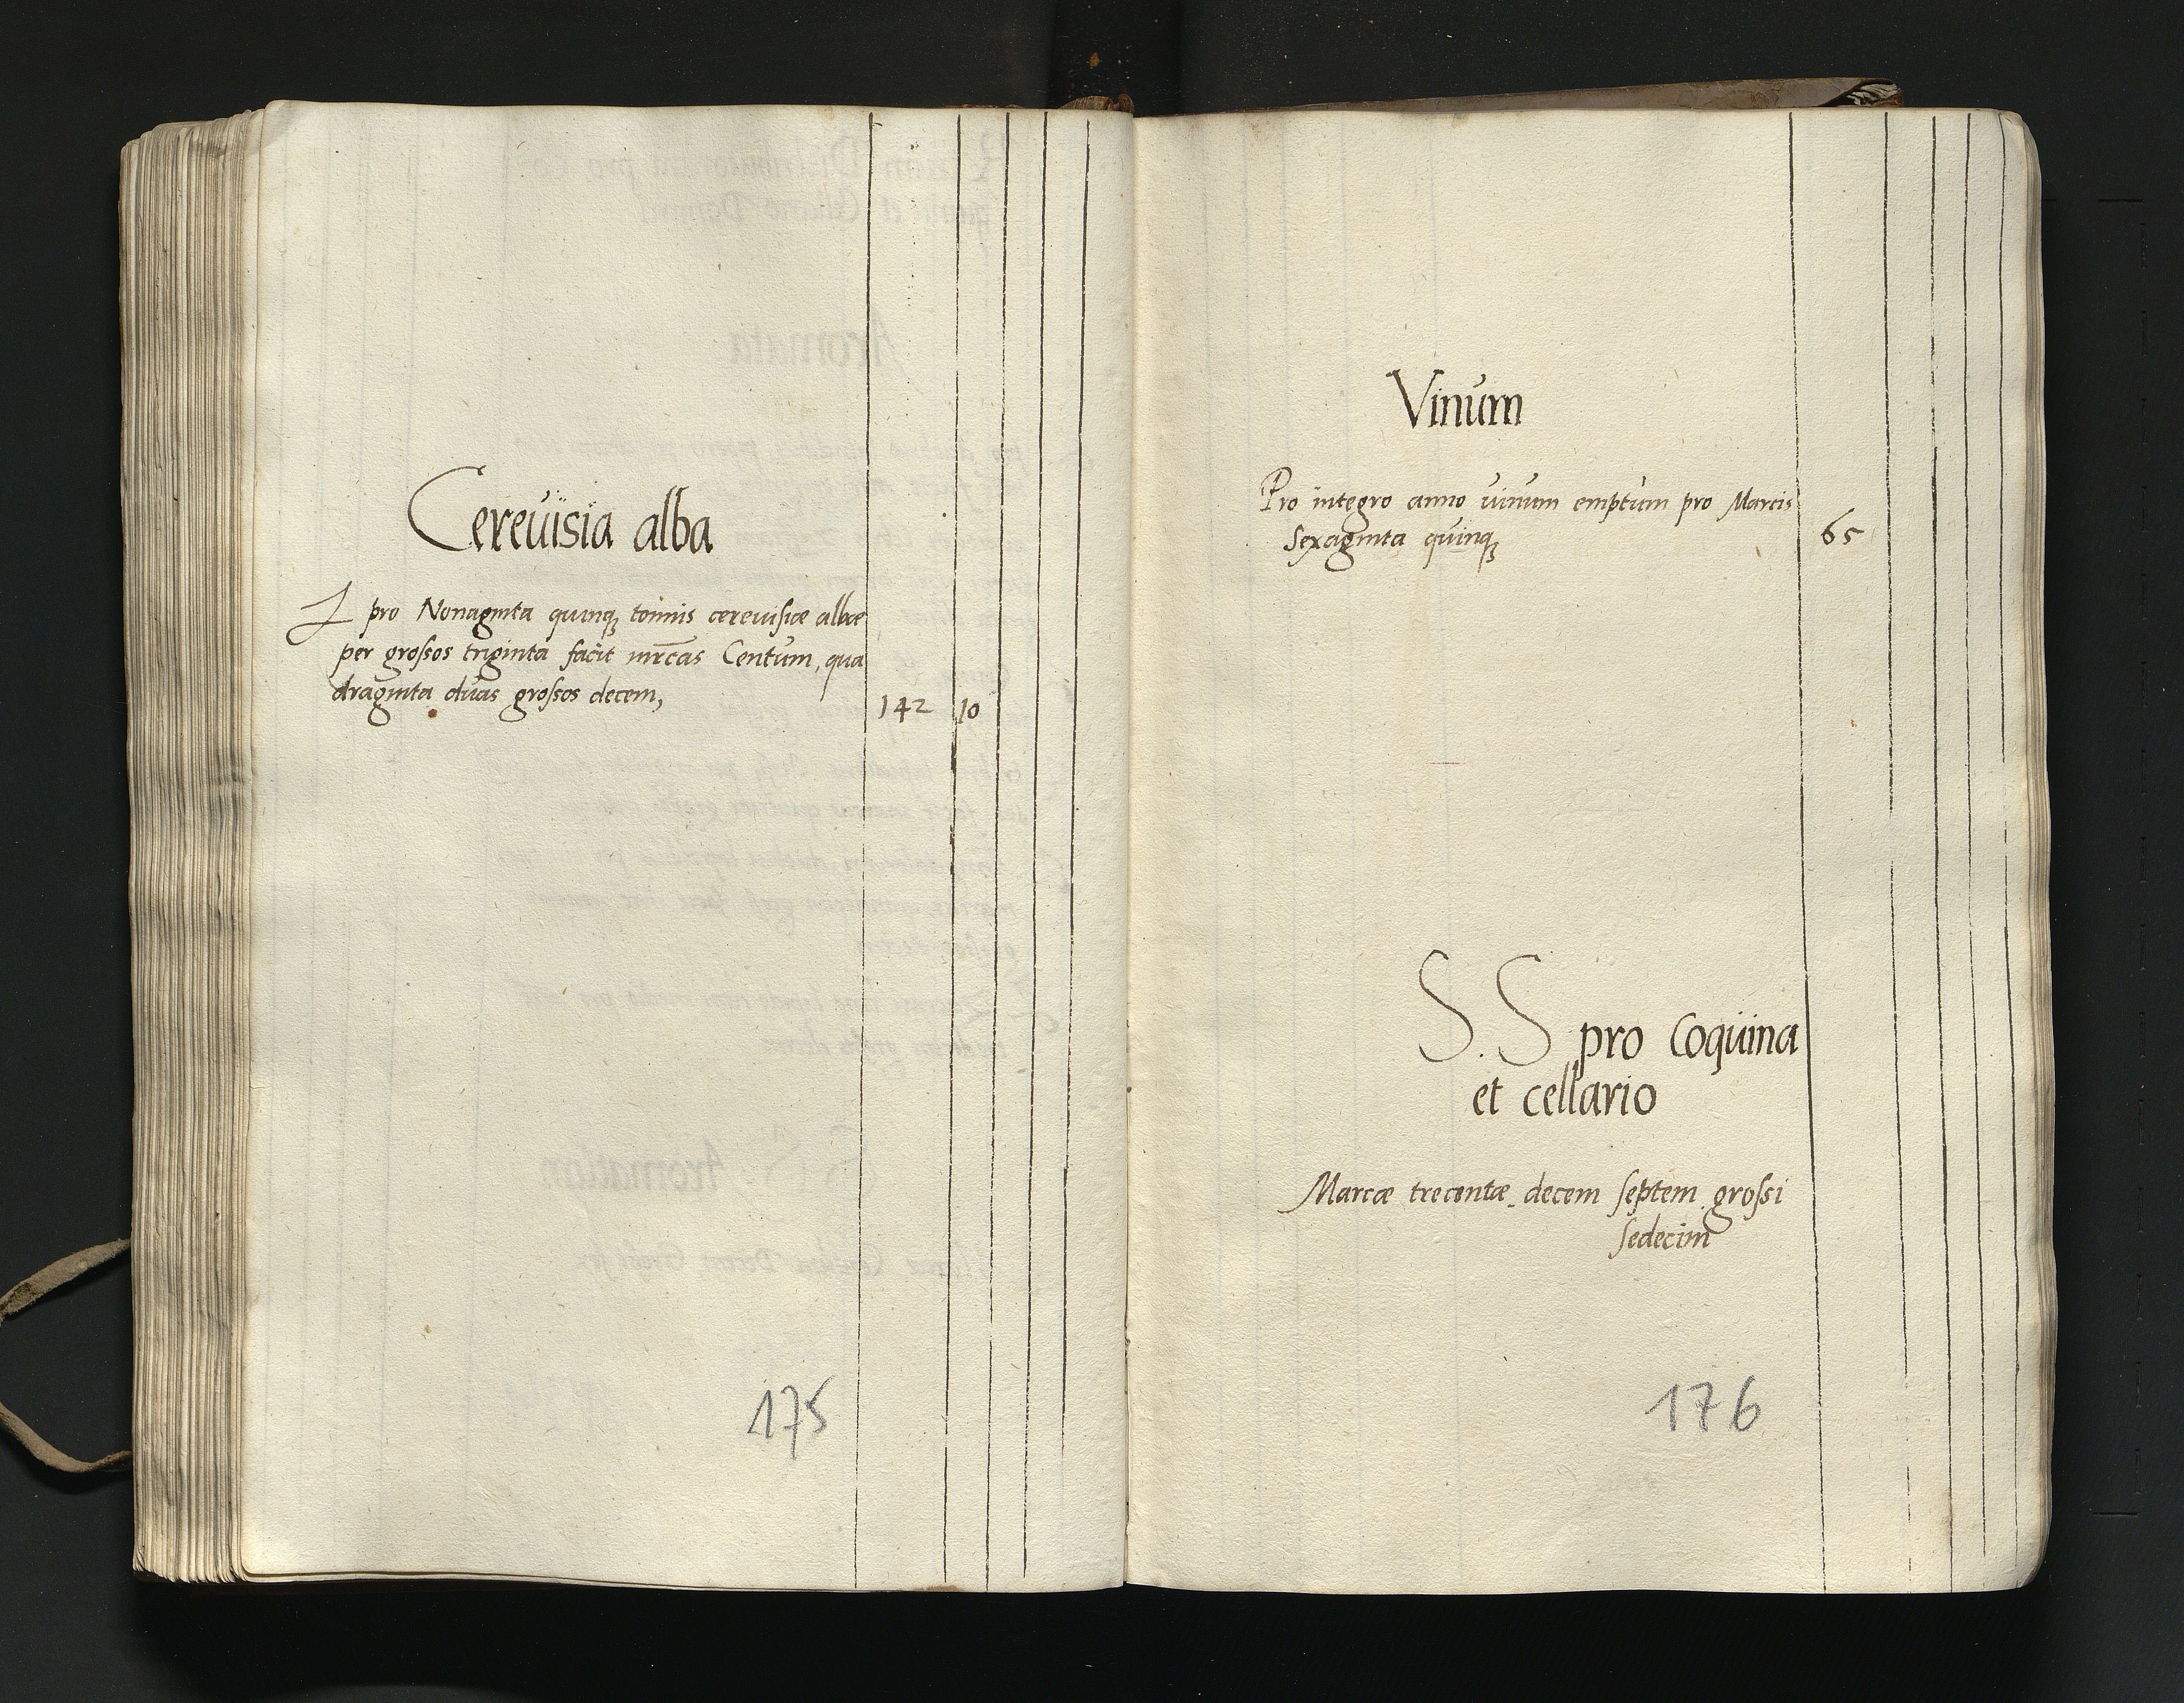 Cereuisia alba
pro Nonaginta quinq; tonnis cereuisiæ albæ
per grossos triginta facit mrcas Centum, qua
draginta duas grossos decem,
142 10
175
Vinum
Pro integro anno uinum emptum pro Marcis
Sexaginta quinq;
65
S. S pro coquina
et cellario
Marcæ trecentæ decem septem grossi
sedecim
176